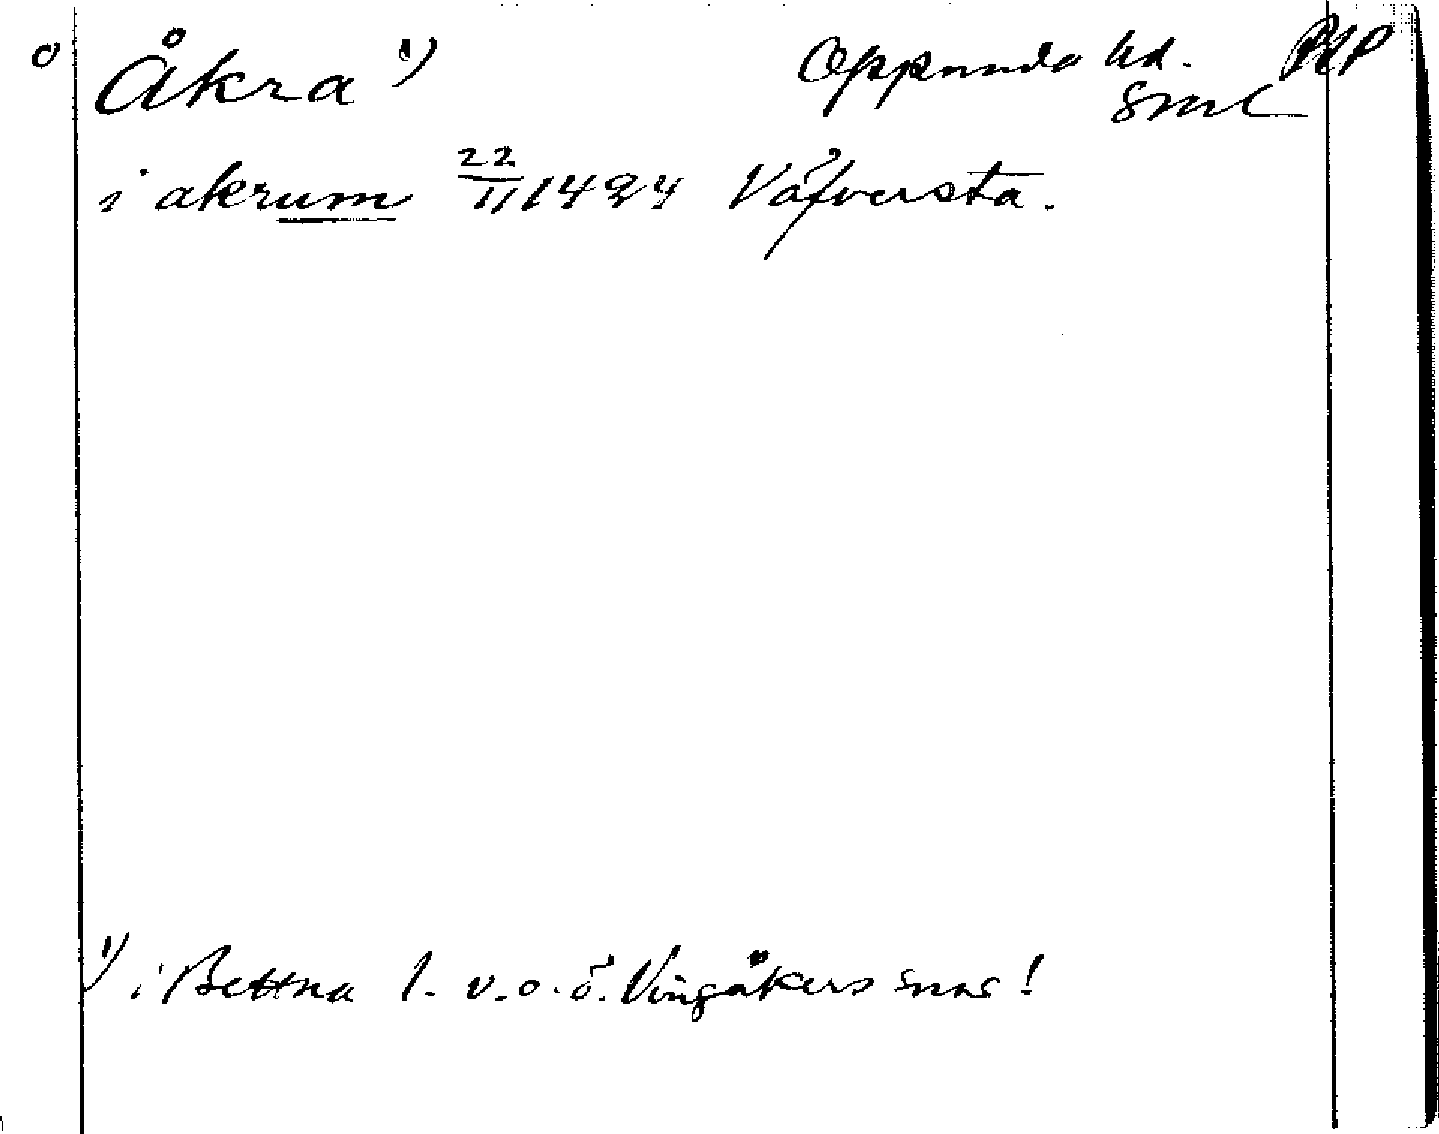 o Åkra 1) Oppunda hd.
Srml
i akrum 22/11 1424 Väfversta.
1) i Bettna l. v. o. ö. Vingåkers snar!